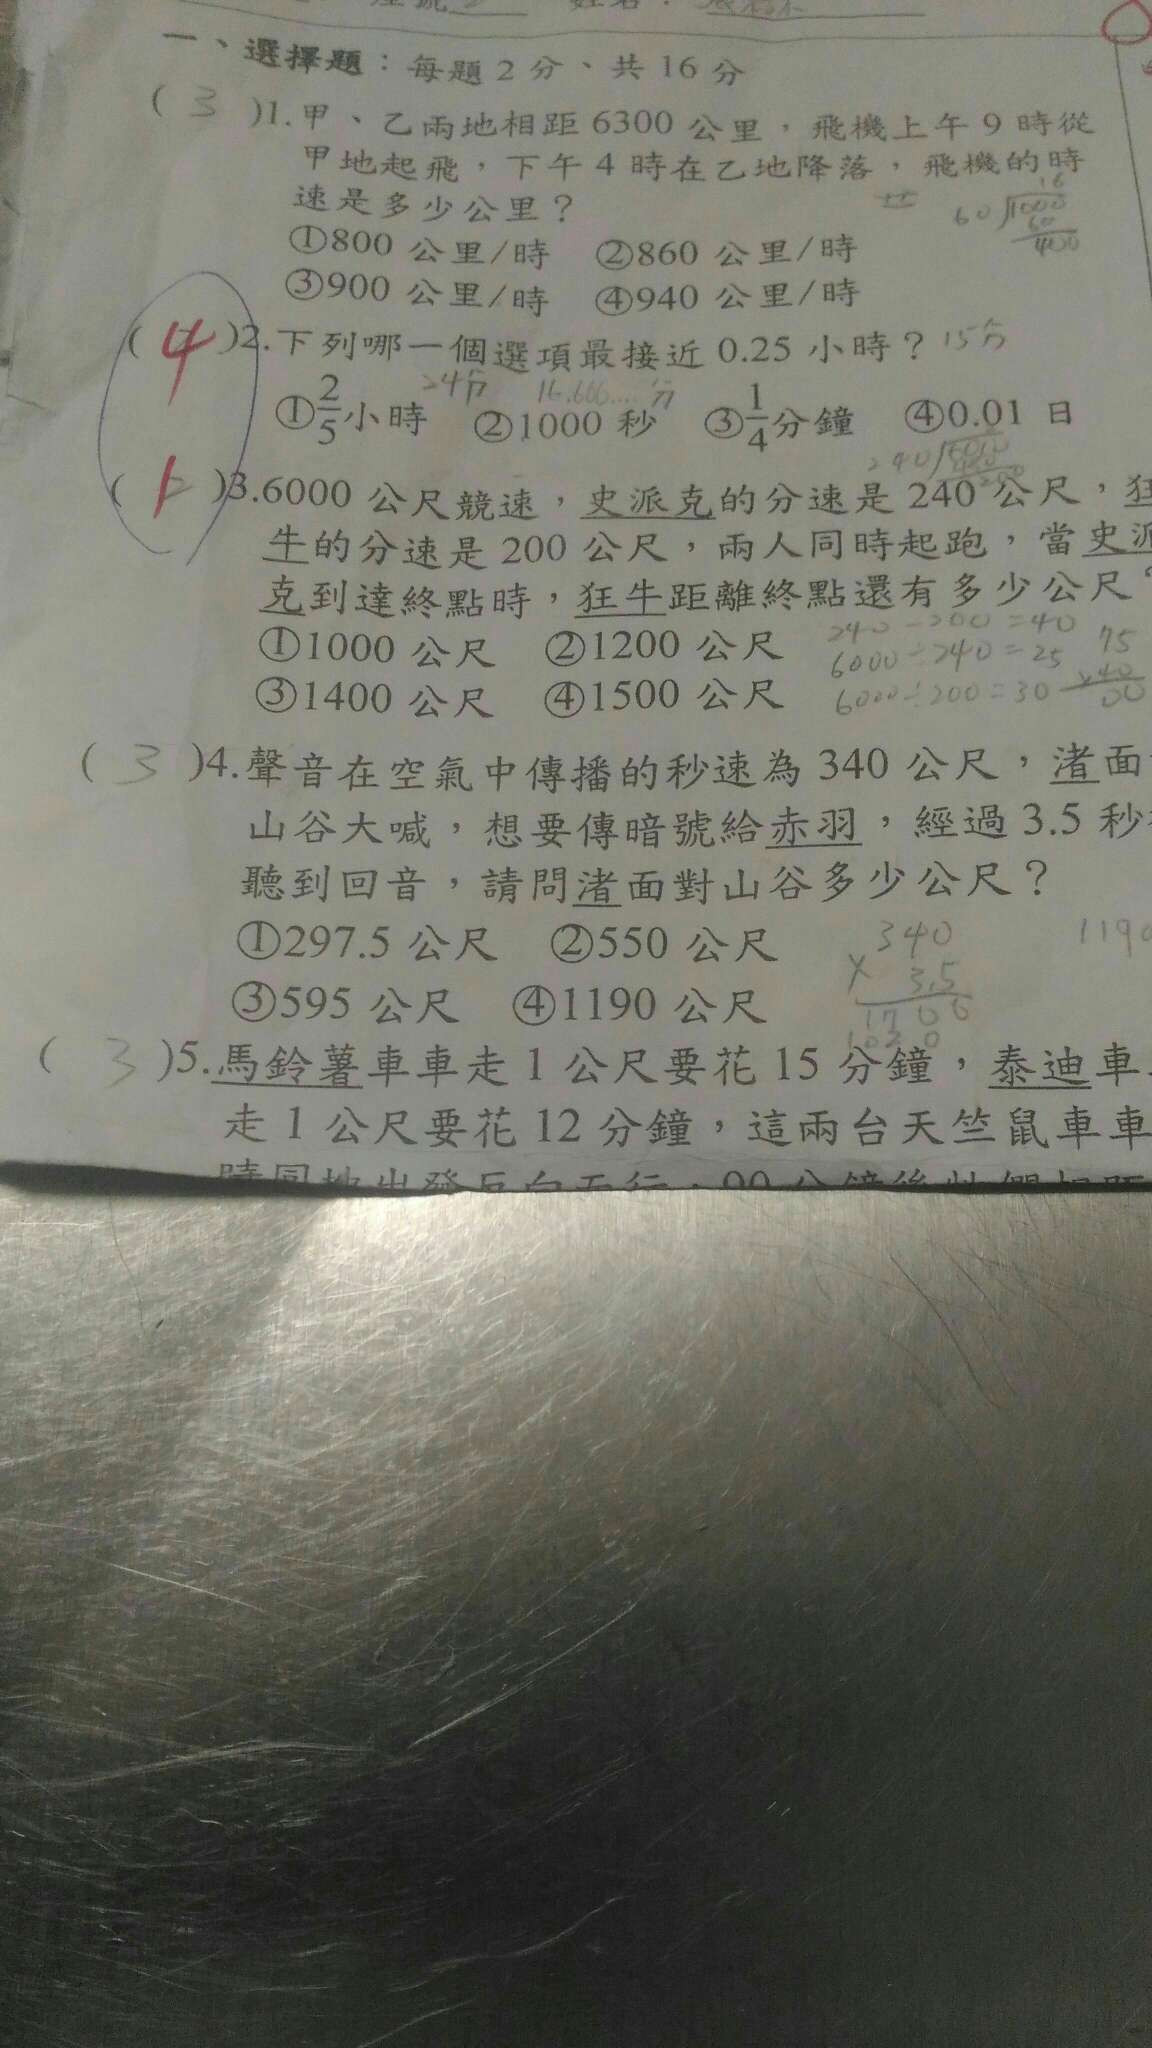 一、選擇題：每題2分、共16分
(3)1.甲、乙兩地相距6300公里，飛機上午9時從
甲地起飛，下午4時在乙地降落，飛機的時
速是多少公里？
①800公里/時 ②860公里/時
③900公里/時 ④940公里/時
16
60)1000
60
400
(4)2.下列哪一個選項最接近0.25小時？15分
24分 16.666....分
①2/5小時 ②1000秒 ③1/4分鐘 ④0.01日
(1)3.6000公尺競速，史派克的分速是240公尺，狂
牛的分速是200公尺，兩人同時起跑，當史派
克到達終點時，狂牛距離終點還有多少公尺？
①1000公尺 ②1200公尺
③1400公尺 ④1500公尺
240-200=40
6000÷240=25
6000÷200=30
(3)4.聲音在空氣中傳播的秒速為340公尺，渚面
山谷大喊，想要傳暗號給赤羽，經過3.5秒
聽到回音，請問渚面對山谷多少公尺？
①297.5公尺 ②550公尺
③595公尺 ④1190公尺
340
X 3.5
1700
1020
1190
(3)5.馬鈴薯車車走1公尺要花15分鐘，泰迪車
走1公尺要花12分鐘，這兩台天竺鼠車車